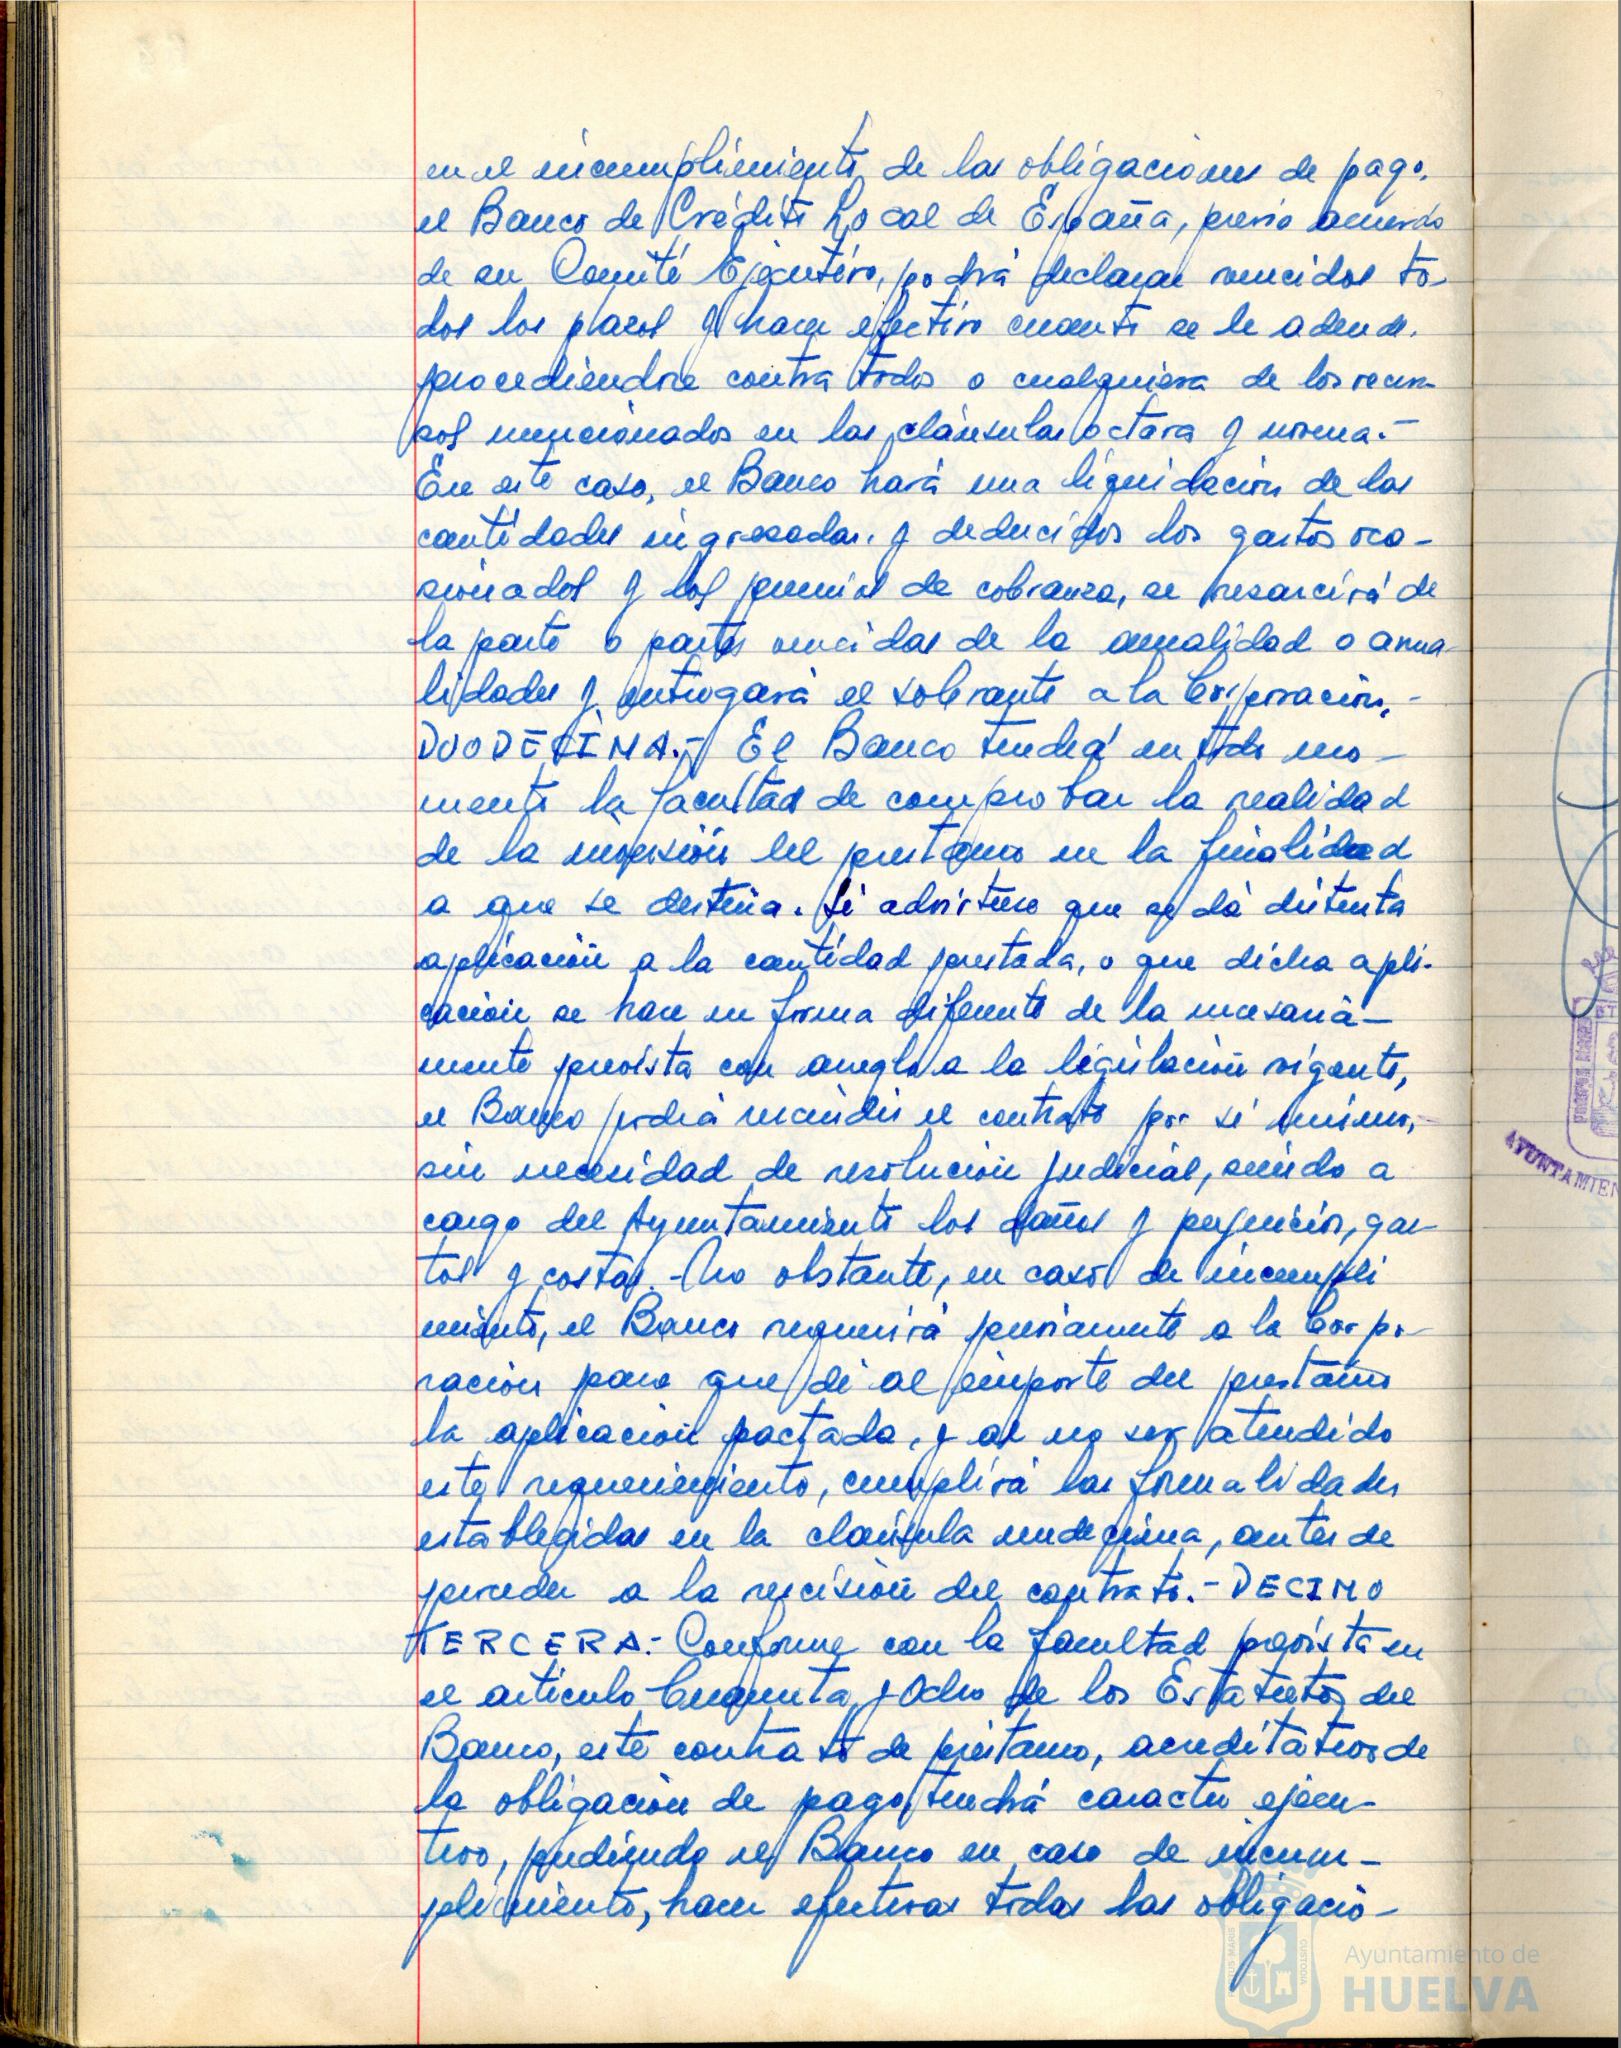 en el incumplimiento de las obligaciones de pago,
el Banco de Crédito Local de España, previo acuerdo
de su Comité Ejecutivo, podrá declarar vencidos to-
dos los plazos y hacer efectivo cuanto se le adeude,
procediéndose contra todos o cualquiera de los recur-
sos mencionados en las cláusulas octava y novena.-
En este caso, el Banco hará una liquidación de las
cantidades ingresadas, y deducidos los gastos oca-
sionados y los premios de cobranza, se resarcirá de
la parte o partes vencidas de la anualidad o anua-
lidades y entregará el sobrante a la Corporación.-
DUODECIMA.- El Banco tendrá en todo mo-
mento la facultad de comprobar la realidad
de la inversión del prestamo en la finalidad
a que se destina. Si advirtiese que se dá distinta
aplicación a la cantidad prestada, o que dicha apli-
cación se hace en forma diferente de la necesaria-
mente prevista con arreglo a la legislación vigente,
el Banco podrá rescindir el contrato por sí mismo,
sin necesidad de resolución judicial, siendo a
cargo del Ayuntamiento los daños y perjuicios, gas-
tos y costas.- No obstante, en caso de incumpli
miento, el Banco requerirá previamente a la Corpo-
ración para que dé al importe del prestamo
la aplicación pactada, y al no ser atendido
este requerimiento, cumplirá las formalidades
establecidas en la claúsula undecima, antes de
proceder a la rescisión del contrato.- DECIMO
TERCERA.- Conforme con la facultad prevista en
el artículo Cincuenta y Ocho de los Estatutos del
Banco, este contrato de préstamo, acreditativo de
la obligación de pago, tendrá caracter ejecu-
tivo, pudiendo el Banco en caso de incum-
plimiento, hacer efectivas todas las obligacio-
AYUNTAMIEN
PORTUS MARIS
CUSTODIA
Ayuntamiento de
HUELVA